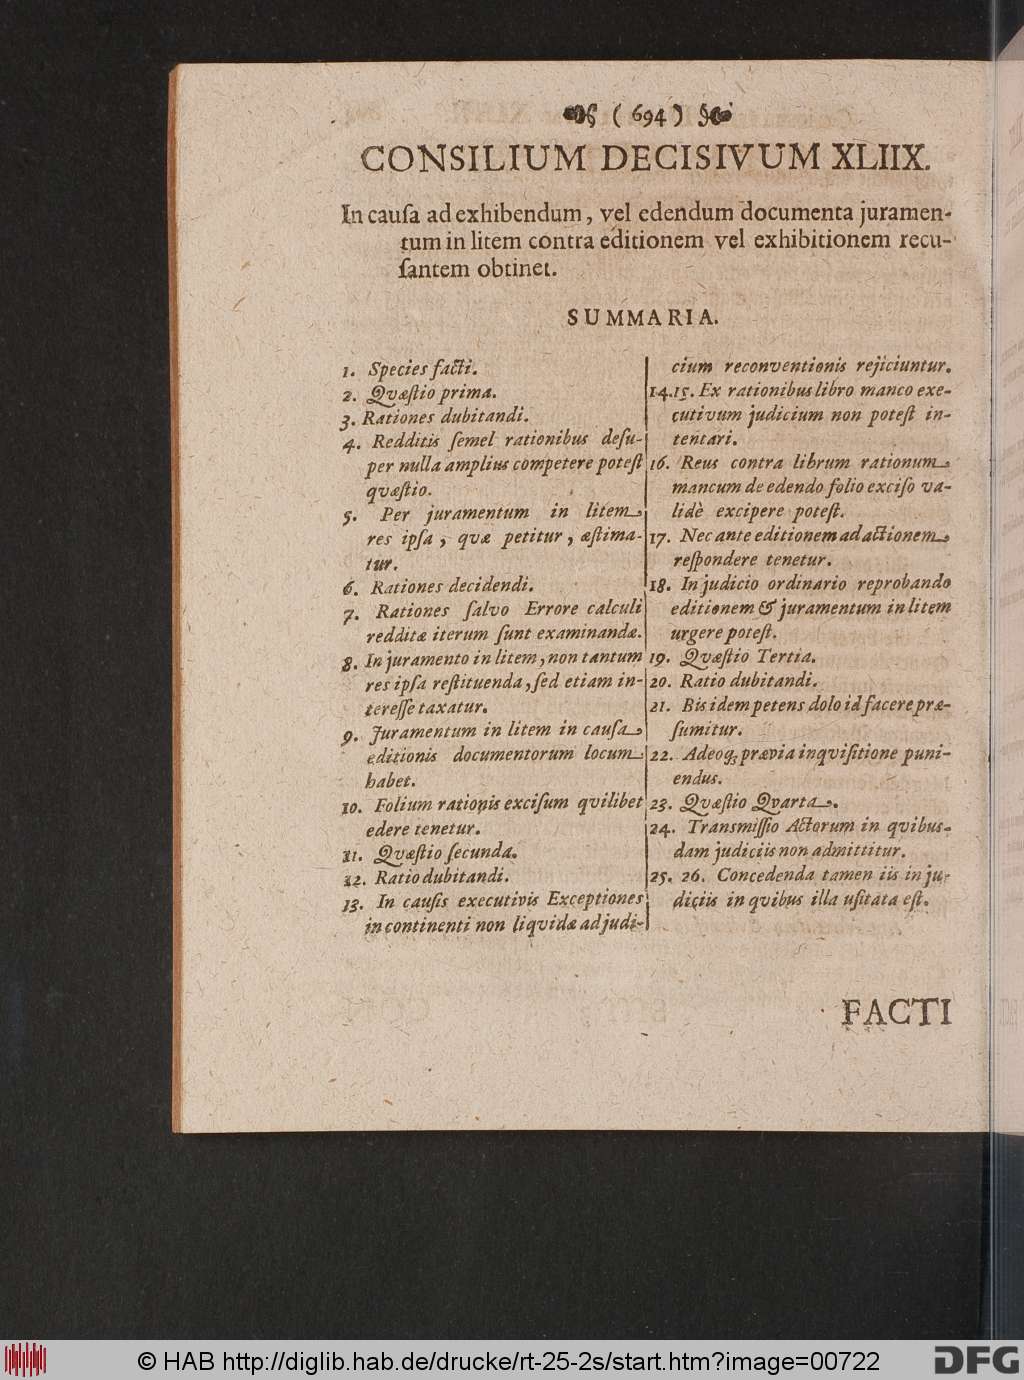 ( 694 )
CONSILIUM DECISIVUM XLIIX.
In cauſa ad exhibendum, vel edendum documenta juramen-
tum in litem contra editionem vel exhibitionem recu-
ſantem obtinet.
SUMMARIA.
1. Species facti.
2. Qvæſtio prima.
3. Rationes dubitandi.
4. Redditis ſemel rationibus deſu-
per nulla amplius competere poteſt
qvæſtio.
5. Per juramentum in litem
res ipſa, qvæ petitur, æſtima-
tur.
6. Rationes decidendi.
7. Rationes ſalvo Errore calculi
redditæ iterum ſunt examinandæ.
8. In juramento in litem, non tantum
res ipſa reſtituenda, ſed etiam in-
tereſſe taxatur.
9. Juramentum in litem in cauſa
editionis documentorum locum
habet.
10. Folium rationis exciſum qvilibet
edere tenetur.
11. Qvæſtio ſecunda.
12. Ratio dubitandi.
13. In cauſis executivis Exceptiones
in continenti non liqvidæ ad judi-
cium reconventionis rejiciuntur.
14.15. Ex rationibus libro manco exe-
cutivum judicium non poteſt in-
tentari.
16. Reus contra librum rationum
mancum de edendo folio exciſo va-
lidè excipere poteſt.
17. Nec ante editionem ad actionem
reſpondere tenetur.
18. In judicio ordinario reprobando
editionem & juramentum in litem
urgere poteſt.
19. Qvæſtio Tertia.
20. Ratio dubitandi.
21. Bis idem petens dolo id facere præ-
ſumitur.
22. Adeoq; prævia inqviſitione puni-
endus.
23. Qvæſtio Qvarta.
24. Transmiſſio Actorum in qvibus-
dam judiciis non admittitur.
25. 26. Concedenda tamen iis in ju-
diciis in qvibus illa uſitata eſt.
FACTI
© HAB http://diglib.hab.de/drucke/rt-25-2s/start.htm?image=00722
DFG